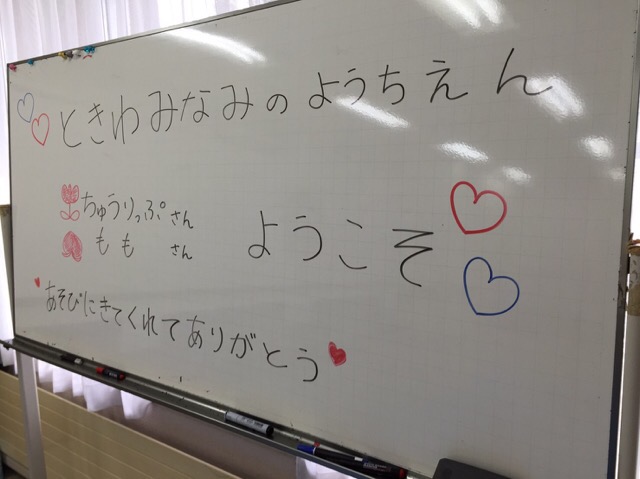 ときわみなみのようちえん
ちゅうりっぷさん
ももさん
ようこそ
あそびにきてくれてありがとう